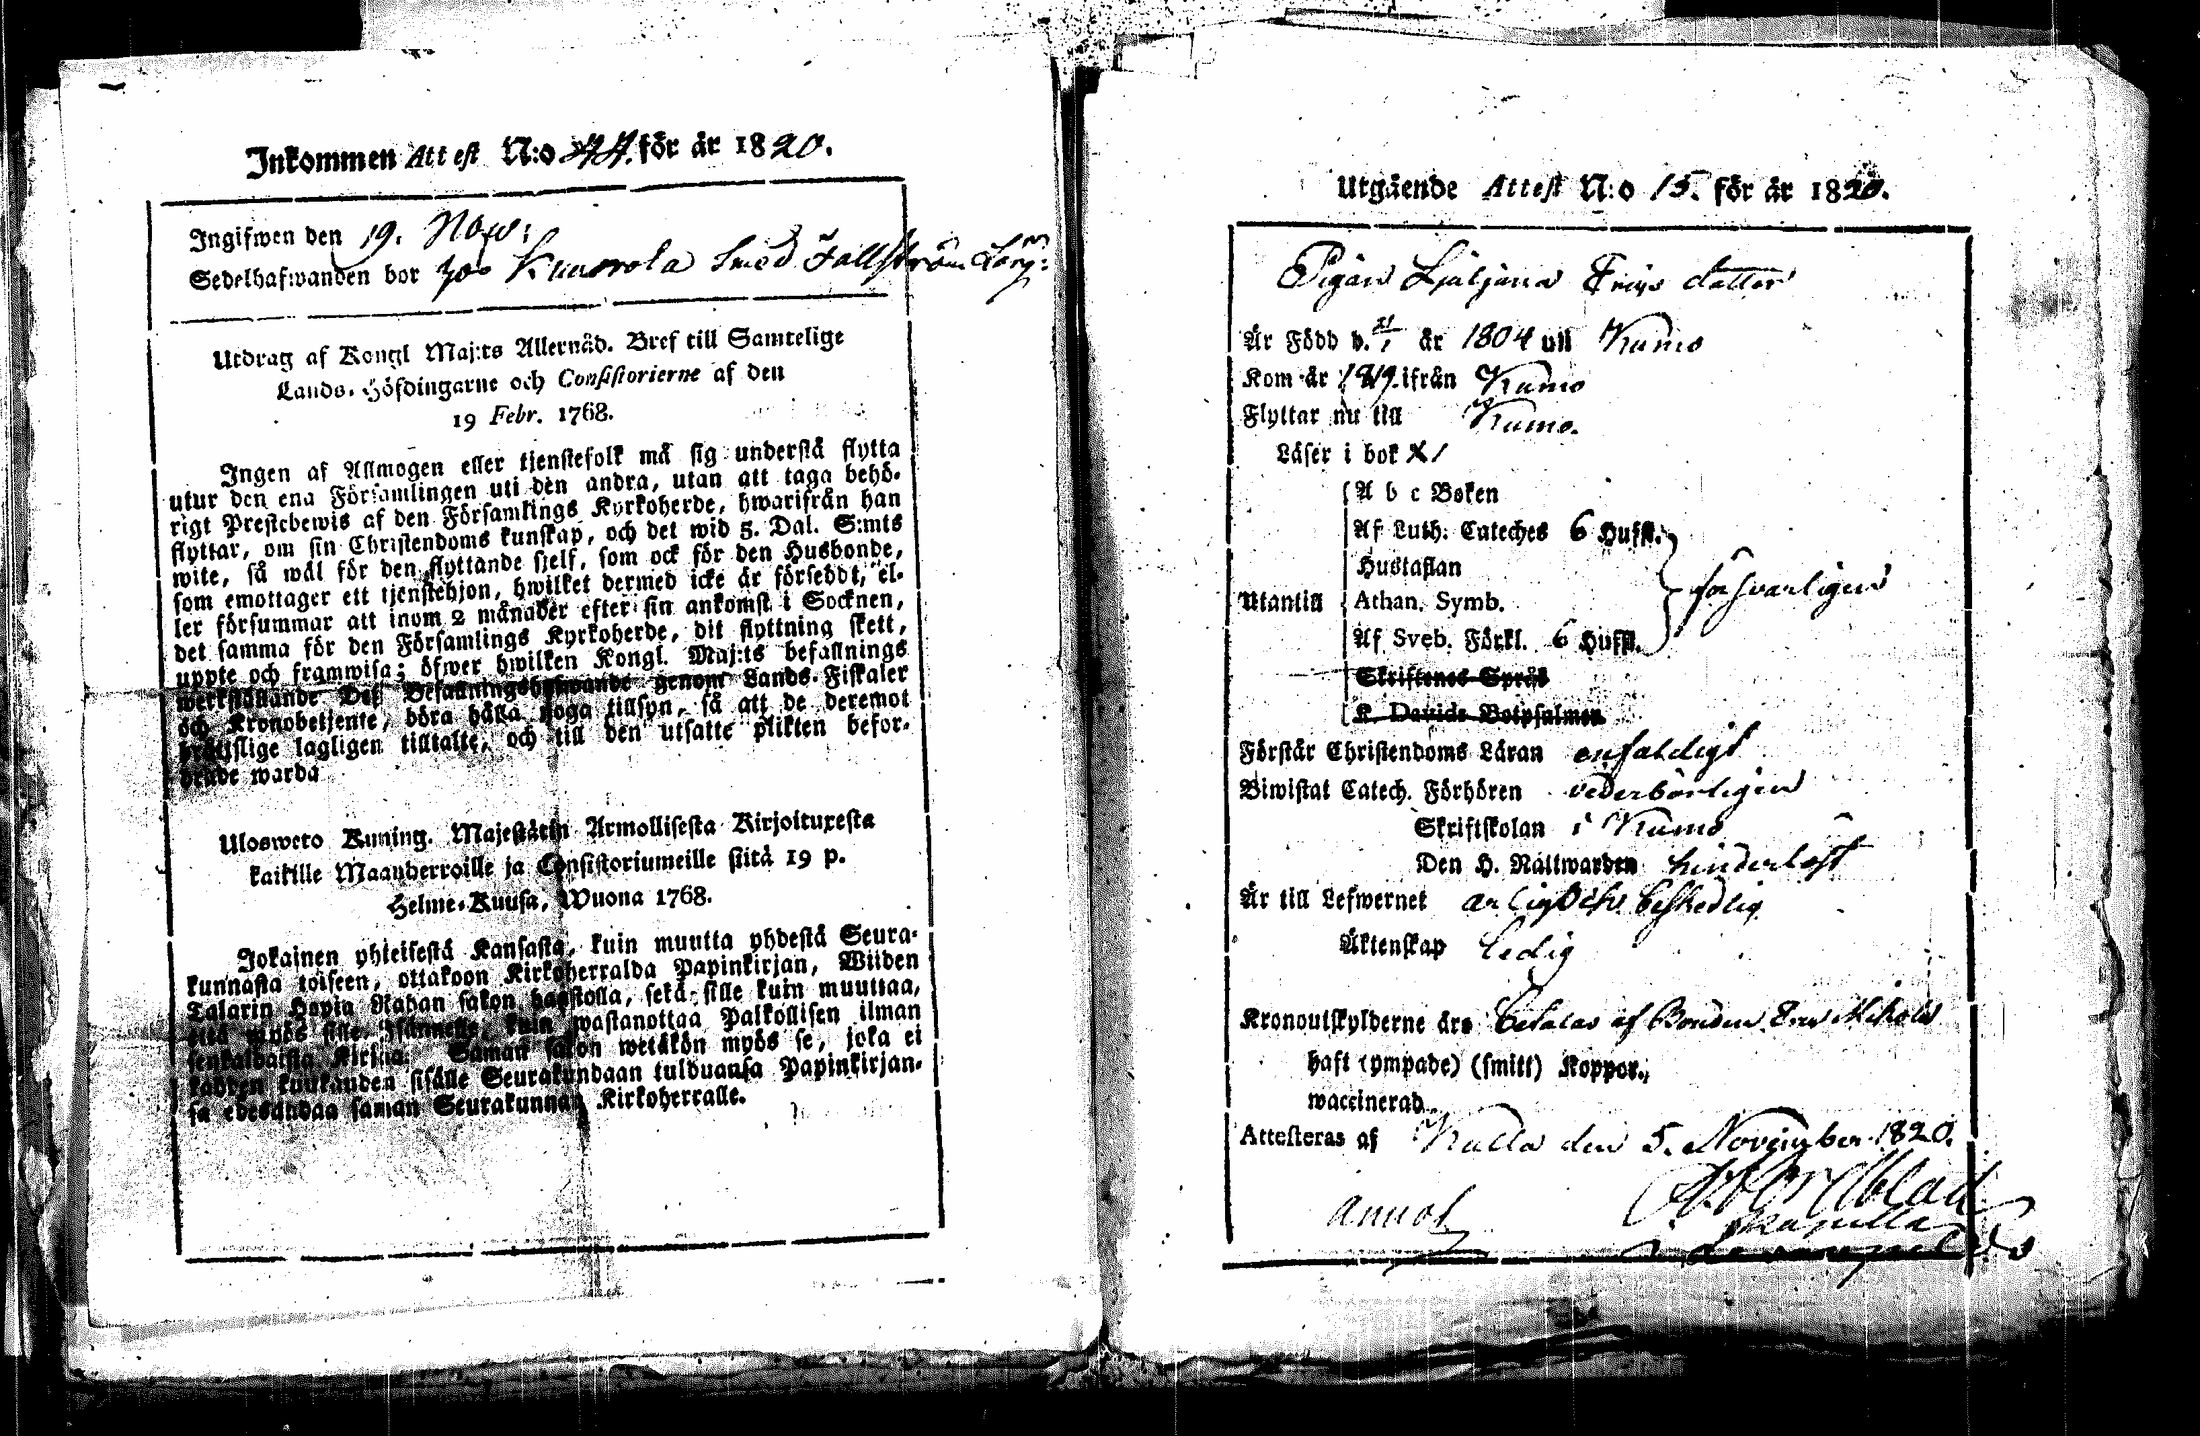 Inkommen Attest N:o 44. för år 1820.
Ingifwen den 19. Now:
Sedelhafwanden bor Kuusrola Smed Fallström
Utdrag af Kongl Maj:ts Allernåd. Bref till Samtelige
Lands-Höfdingarne och Consistorierne af den
19 Febr. 1768.
Ingen af Allmogen eller tjenstefolk må sig understå flytta
utur den ena Församlingen uti den andra, utan att taga behö-
rigt Prestebewis af den Församlings Kyrkoherde, hwarifrån han
flyttar, om sin Christendoms kunskap, och det wid 5. Dal. S:mts
wite, så wäl för den flyttande sjelf, som ock för den Husbonde,
som emottager ett tjenstehjon, hwilket dermed icke är försedt, el-
ler försummar att inom 2 månader efter sin ankomst i Socknen,
det samma för den Församlings Kyrkoherde, dit flyttning skett,
uppte och framwisa; öfwer hwilken Kongl. Maj:ts befallnings
werkställande Deß Befallningshafwande genom Lands-Fiskaler
och Kronobetjente, böra hålla noga tillsyn, så att de deremot
brottslige lagligen tilltalte, och till den utsatte plikten befor-
drade warda
Ulosweto Kuning. Majestätin Armollisesta Kirjoituxesta
kaikille Maanherroille ja Consistoriumeille siitä 19 p.
Helme-Kuusa, Wuona 1768.
Jokainen yhteisestä Kansasta, kuin muutta yhdestä Seura-
kunnasta toiseen, ottakoon Kirkoherralda Papinkirjan, Wiiden
Talarin Hopia Rahan sakon haastolla, sekä sille kuin muuttaa,
että myös sille Isännelle, kuin wastanottaa Palkollisen ilman
senkaldaista Kirjaa. Saman sakon wetäkön myös se, joka ei
kahden kuukauden sisälle Seurakundaan tulduansa Papinkirjan-
sa edesandaa saman Seurakunnan Kirkoherralle.
Utgående Attest N:o 15. för år 1820.
Pigan Ljuljana Eriks dotter
Är Född d. 21/1 år 1804 uti Kumo
Kom år 1819. ifrån Kumo
Flyttar nu till Kumo.
Läser i bok X/
A b c Boken
Af Luth. Cateches 6 Huft.
Hustaflan
Utantill Athan. Symb. försvarligen
Af Sveb. Förkl. 6 Huft.
Skriftenes Språk
K. Davids Botpsalmer
Förstår Christendoms Läran enfaldigt
Biwistat Catech. Förhören vederbörligen
Skriftskolan i Kumo
Den H. Nattwarden hinderlöst
Är till Lefwernet ärlig och beskedlig
Äktenskap ledig
Kronoutskylderne äro betalas af Bonden
haft (ympade) (smitt) Koppor.
waccinerad.
Attesteras af Kulla den 5. November 1820.
Nordblad
Kapellan